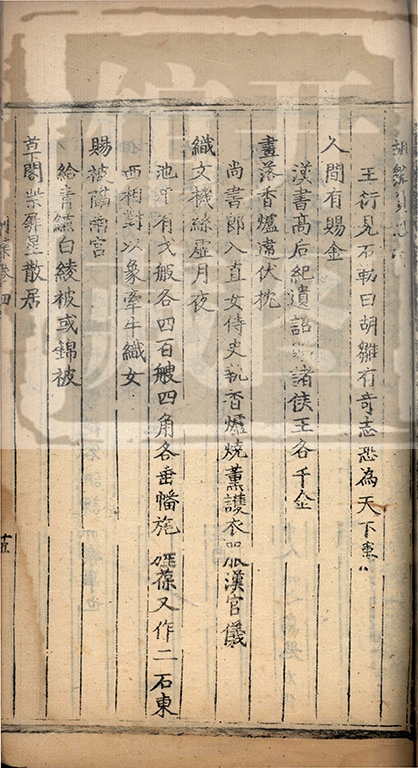 王衍見石勒曰胡雛有奇志恐為天下患
人間有賜金
漢書高后紀遺詔 諸侯王各千金
畫落香爐席伏枕
尚書郎入直女侍史執香爐燒薰護衣服漢官儀
織文機絲虛月夜
池中有戈舩各四百艘四角各垂幡旄旌葆又作二石東
西相對以象牽牛織女
賜被隔南宮
給青縑白綾被或錦被
草閣柴扉星散居
十五